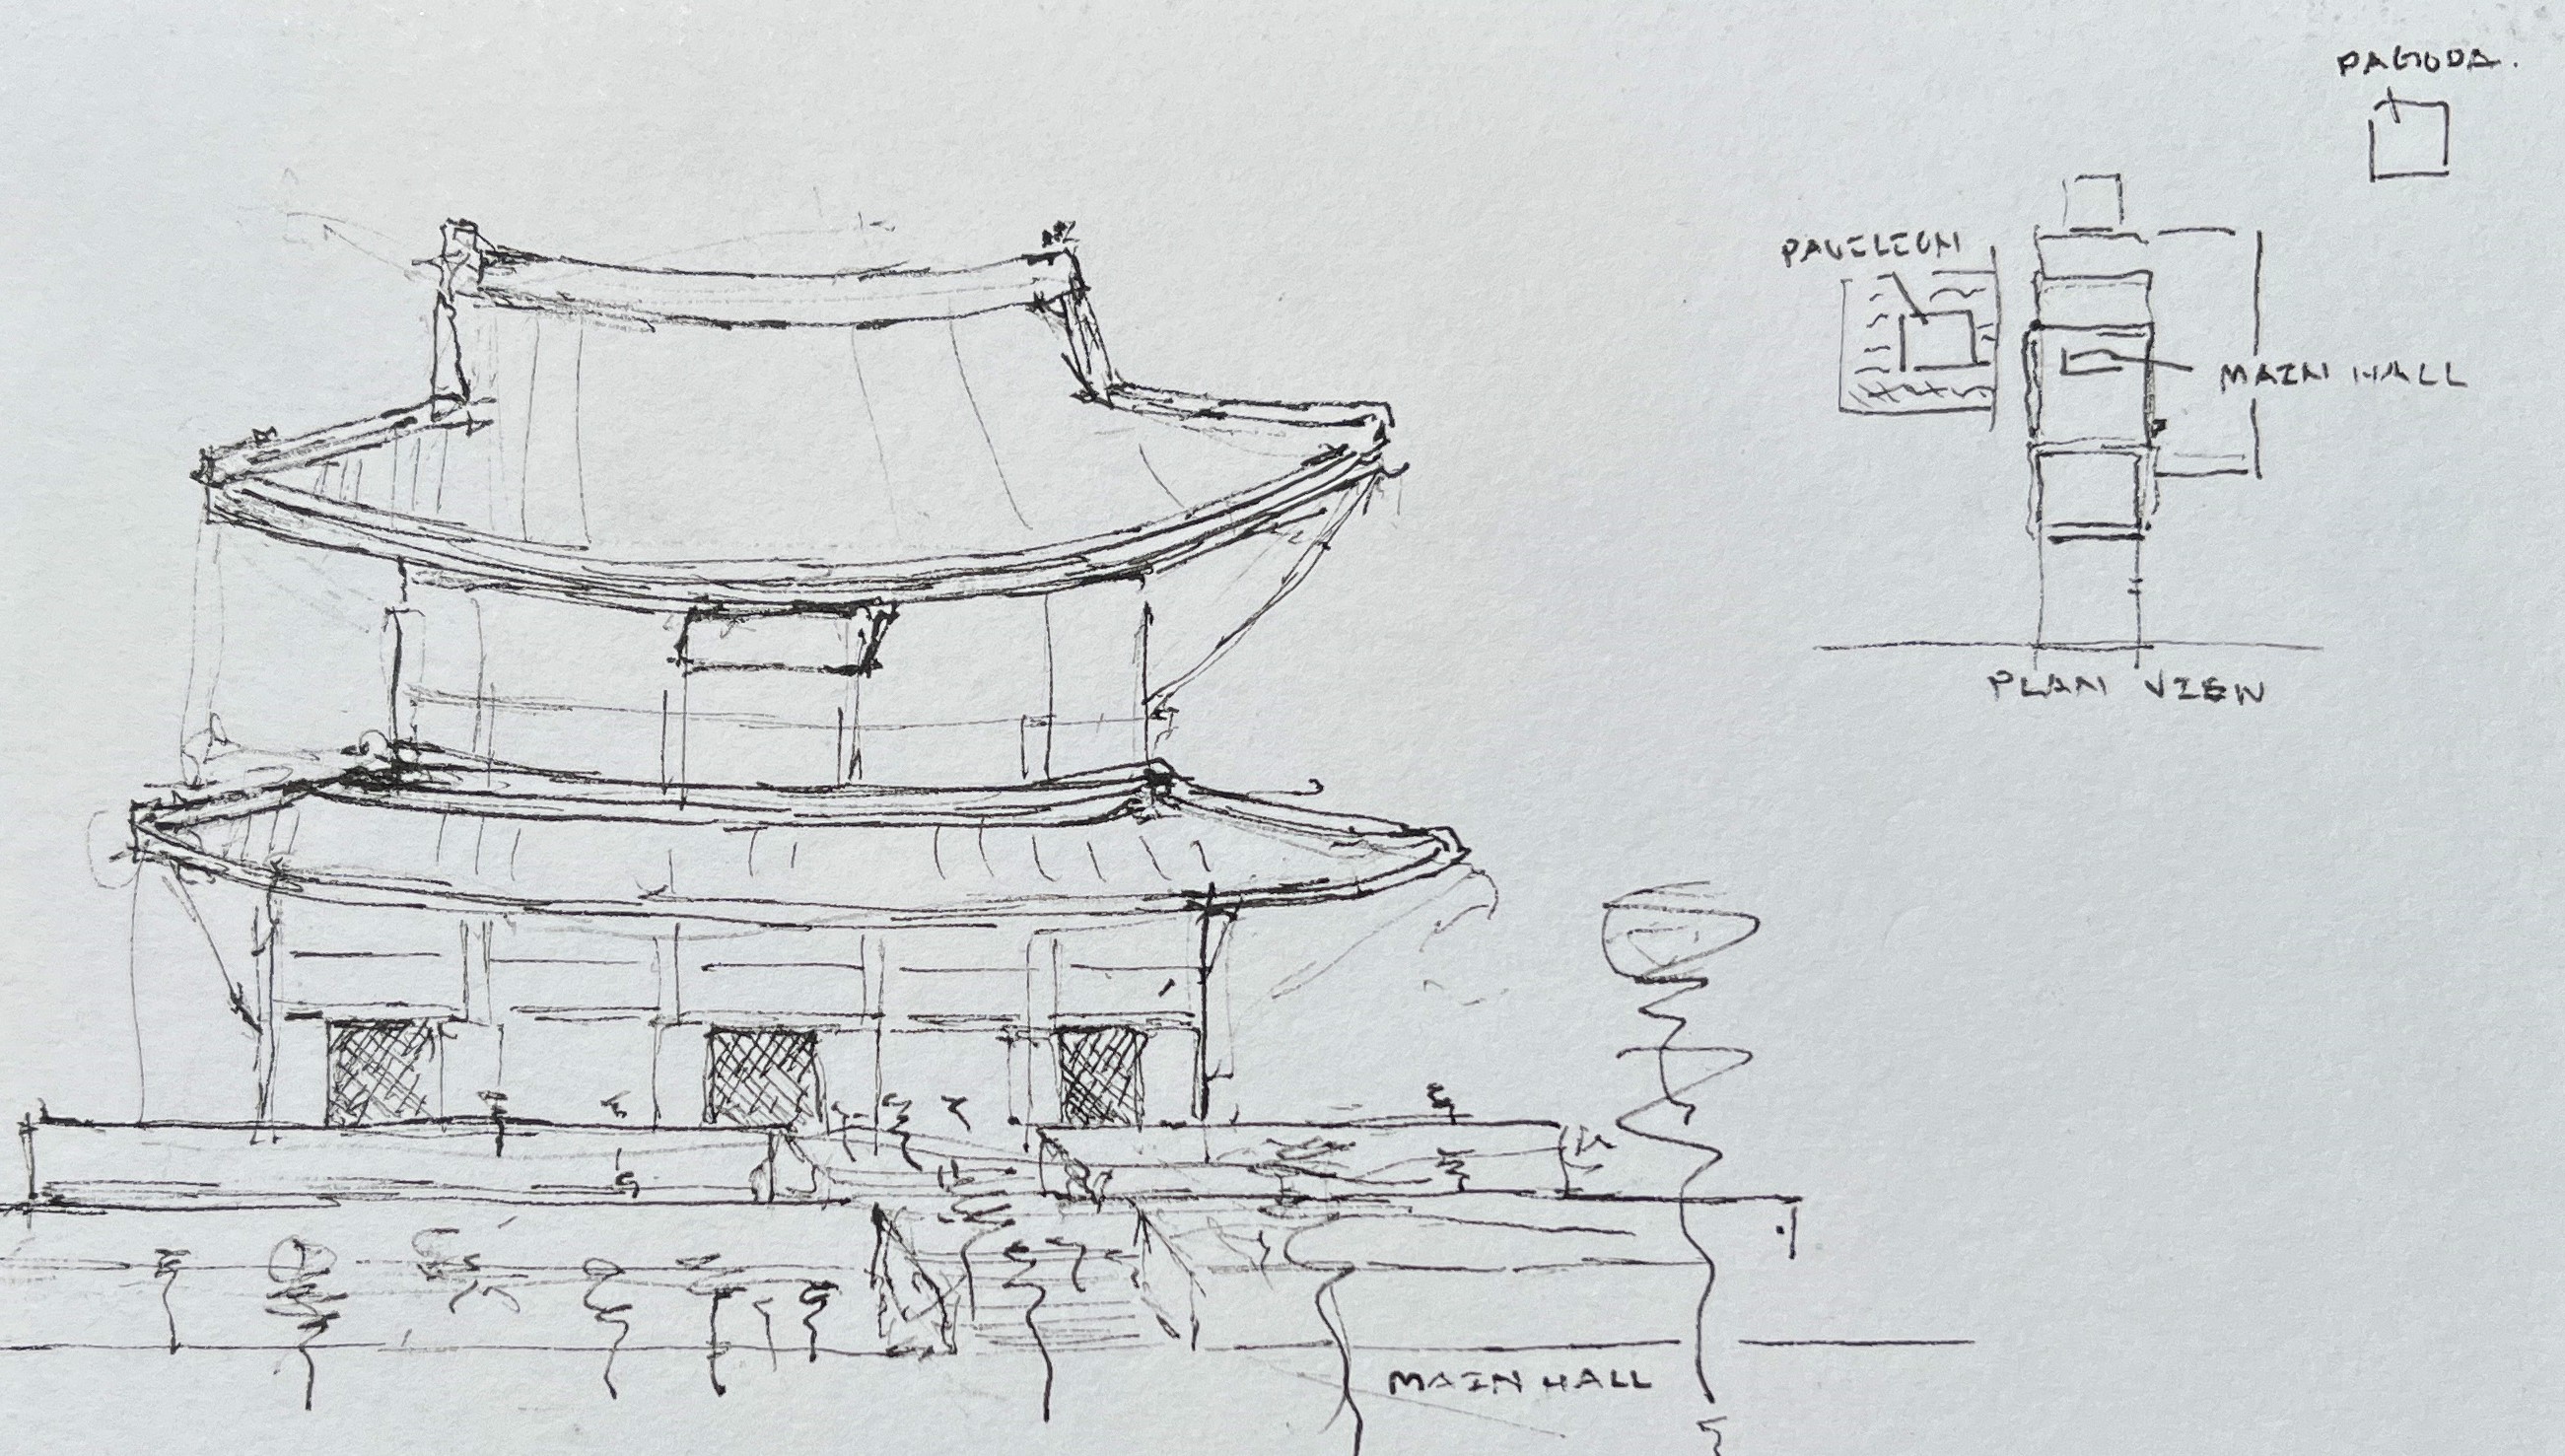 PAGODA.
PAVILION
MAIN HALL
PLAN VIEW
MAIN HALL